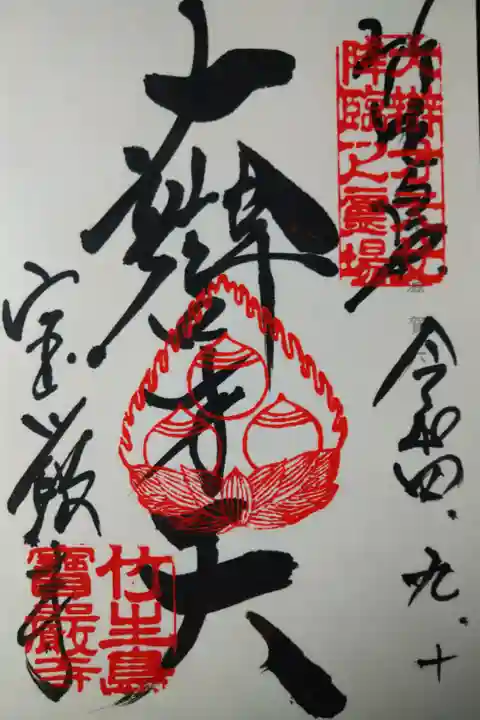 竹生島
降臨之霊場
令和四.九.十
大辯才天
宝厳寺
竹生島
寶嚴寺